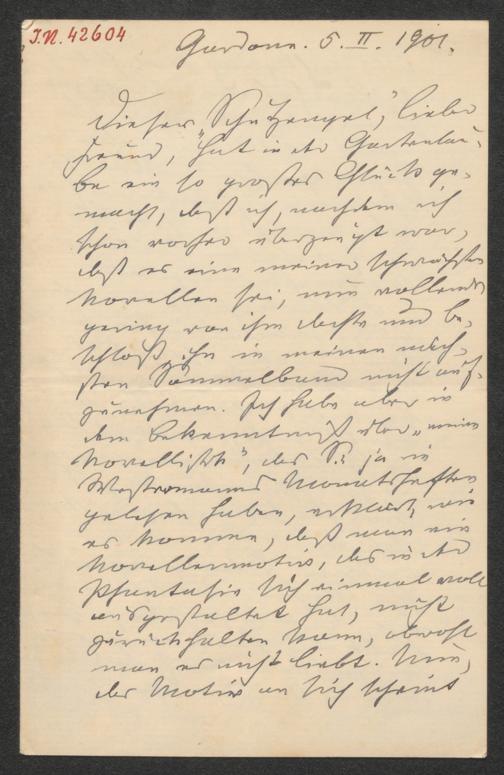 I.N. 42604
Gardone. 5. II. 1901.
Dieser „Schutzengel“, lieber
Freund, hat in der Gartenlau-
be ein so großes Glück ge-
macht, daß ich, nachdem ich
schon vorher überzeugt war,
daß es eine meiner schwächsten
Novellen sei, nun vollends
gering von ihm dachte und be-
schloß ihn in meinen näch-
sten Sammelband nicht auf-
zunehmen. Ich habe aber in
dem Bekenntniß über „meine
Novellistik“, das Sie ja in
Westermanns Monatsheften
gelesen haben, erklärt, wie
es komme, daß man ein
Novellenmotiv, das in der
Phantasie sich einmal voll
ausgestaltet hat, nicht
zurückhalten kann, obwohl
man es nicht liebt. Nun,
das Motiv an sich scheint